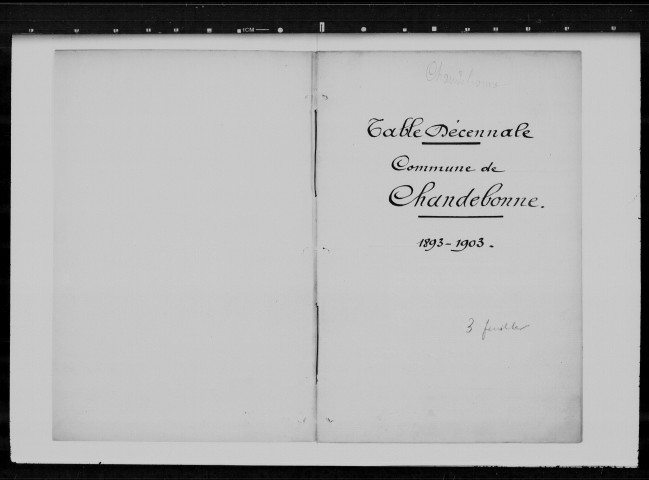 Table Décennale
Commune de
Chandebonne.
1893-1903.
3 feuilles